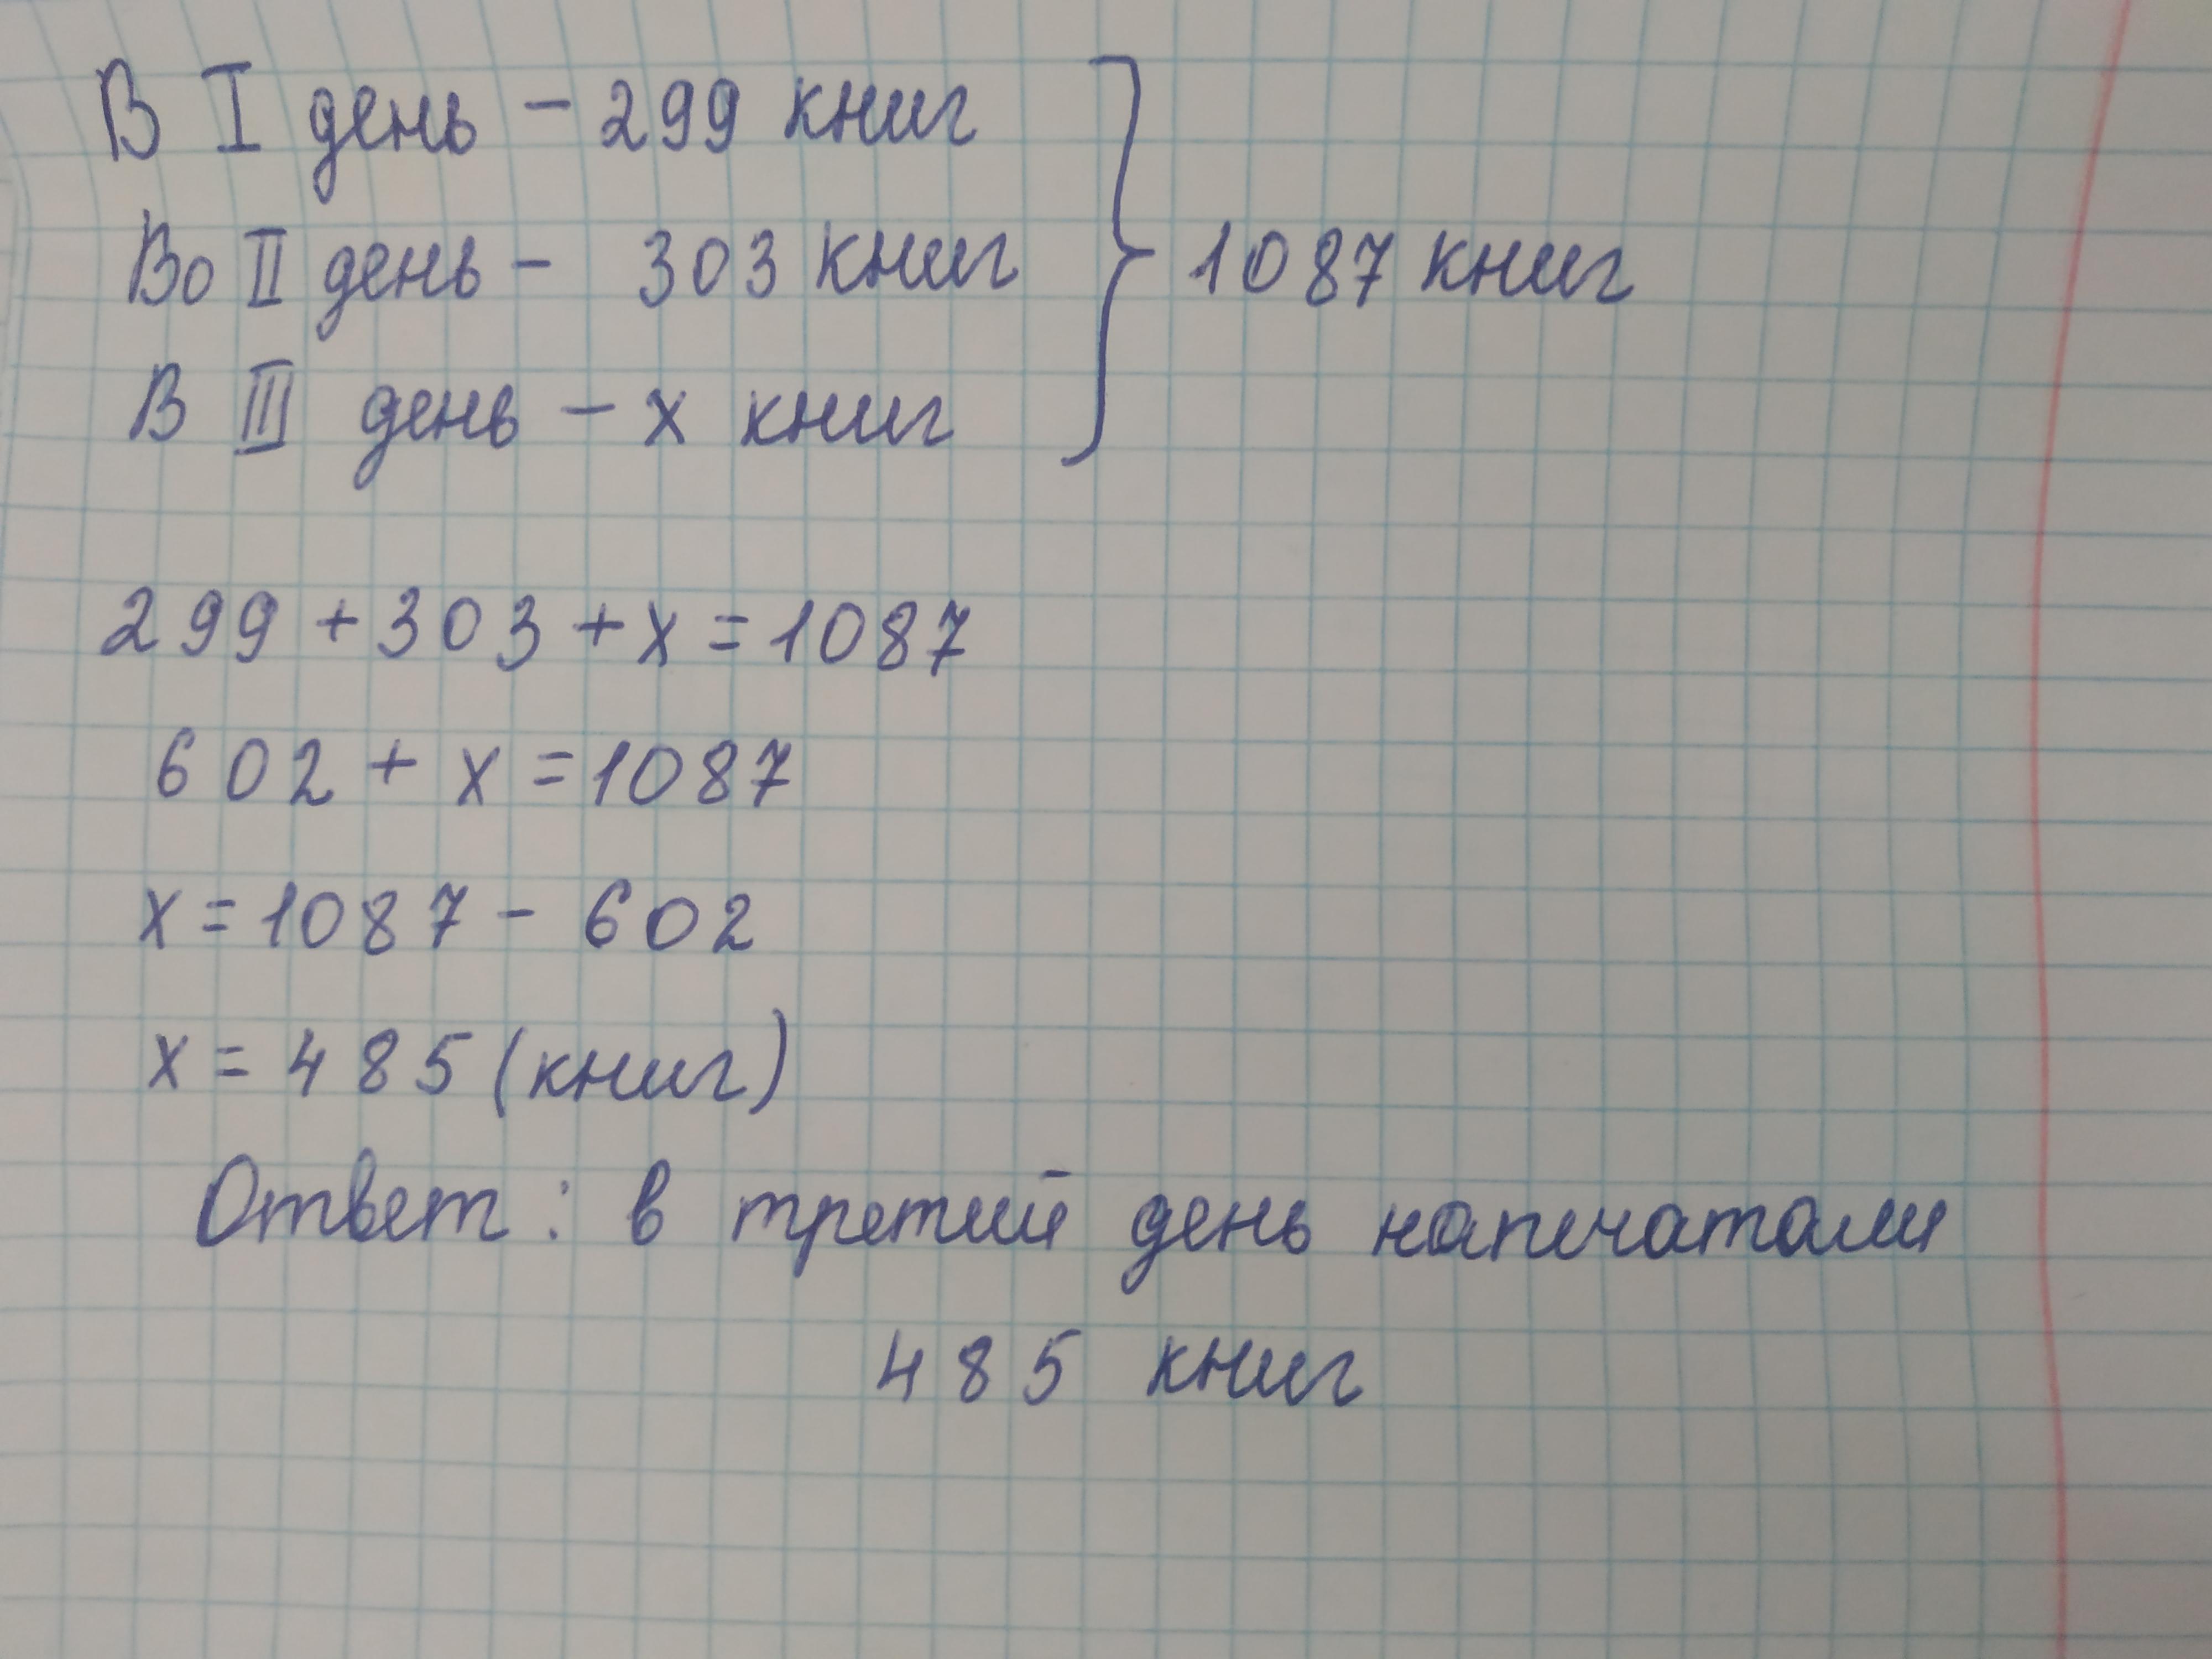 В I день - 299 книг
Во II день - 303 книг
В III день - х книг
1087 книг
299 + 303 + х = 1087
602 + х = 1087
х = 1087 - 602
х = 485 (книг)
Ответ: в третий день напечатали
485 книг